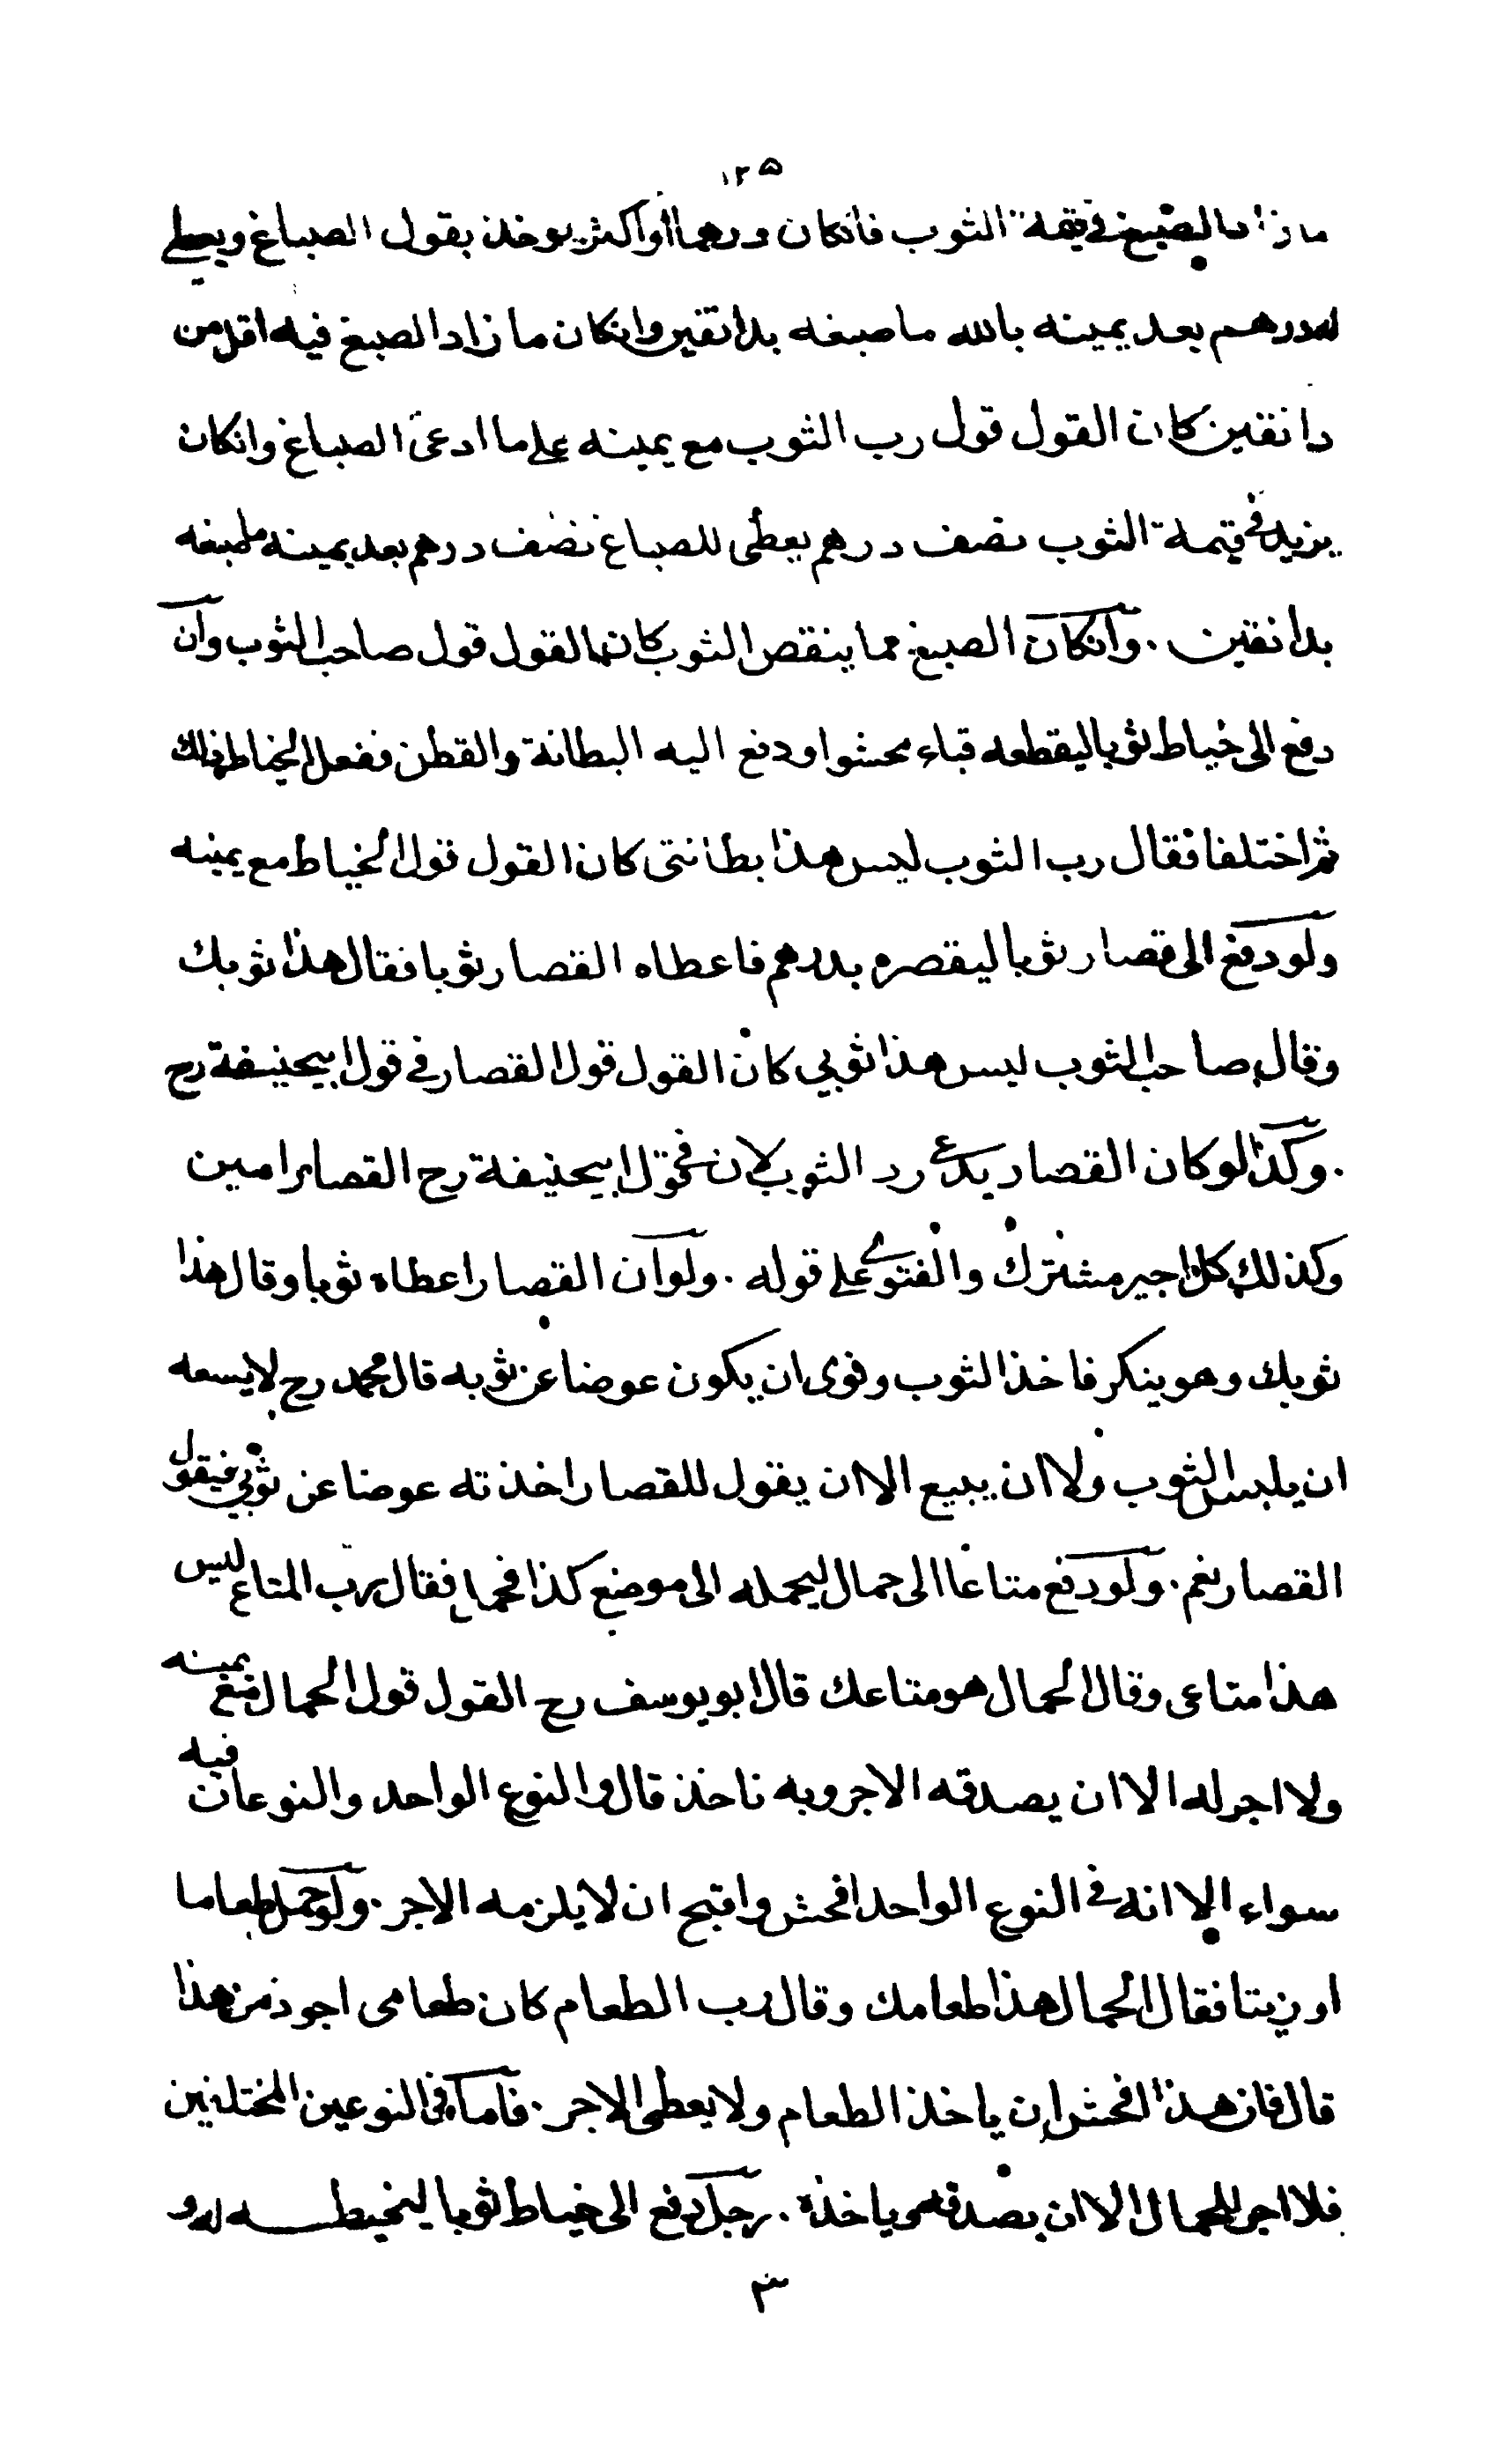 ١٢٥
ما زاد الصبغ في قيمة الثوب فانكان درهما أو اكثر يوخذ بقول الصباغ ويعطى
له درهم بعد يمينه بالله ما صبغه بدانقين وانكان ما زاد الصبغ فيه اقل من
دانقين كان القول قول رب الثوب مع يمينه على ما ادعى الصباغ وانكان
يزيد في قيمة الثوب نصف درهم يعطى للصباغ نصف درهم بعد يمينه ما صبغه
بدانقين . وانكان الصبغ مما ينقص الثوب كان القول قول صاحب الثوب وان
دفع الى خياط ثوبا ليقطعه قباء محشوا ودفع اليه البطانة والقطن ففعل الخياط ذلك
ثم اختلفا فقال رب الثوب ليس هذا بطانتى كان القول قول الخياط مع يمينه
ولو دفع الى قصار ثوبا ليقصره بدرهم فاعطاه القصار ثوبا فقال هذا ثوبك
وقال صاحب الثوب ليس هذا ثوبي كان القول قول القصار في قول ابيحنيفة رح
. وكذا لو كان القصار يدعى رد الثوب لان في قول ابيحنيفة رح القصار امين
وكذلك كل اجير مشترك والفتوى على قوله . ولو ان القصار اعطاه ثوبا وقال هذا
ثوبك وهو ينكر فاخذ الثوب ونوى ان يكون عوضا عن ثوبه قال محمد رح لا يسعه
ان يلبس الثوب ولا ان يبيع الا ان يقول للقصار اخذته عوضا عن ثوبي فيقول
القصار نعم . ولو دفع متاعا الى حمال ليحمله الى موضع كذا فحمل فقال رب المتاع ليس
هذا متاعى وقال الحمال هو متاعك قال ابو يوسف رح القول قول الحمال مع يمينه
ولا اجر له الا ان يصدقه الاجر وبه ناخذ قال والنوع الواحد والنوعان فيه
سواء الا انه في النوع الواحد افحش واقبح ان لا يلزمه الاجر . ولو حمل طعاما
او زيتا فقال الحمال هذا طعامك وقال رب الطعام كان طعامى اجود من هذا
قال فان هذا افحش ان ياخذ الطعام ولا يعطى الاجر . فاما في النوعين المختلفين
فلا اجر للحمال الا ان يصدقه وياخذه . رجل دفع الى خياط ثوبا ليخيطه له و